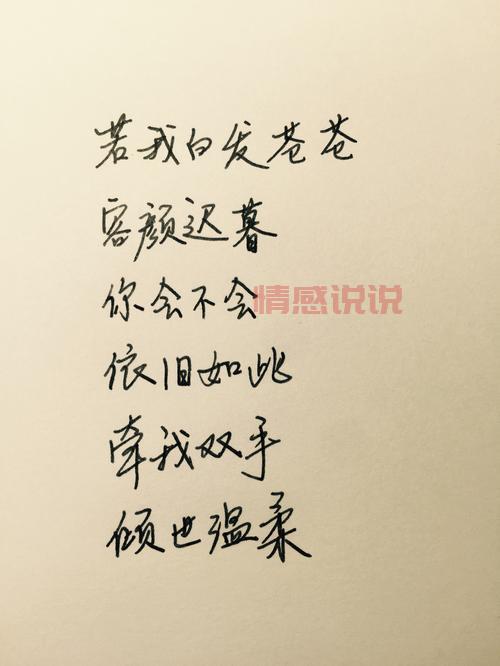 若我白发苍苍
容颜迟暮
你会不会 情感说说
依旧如此
牵我双手
倾世温柔